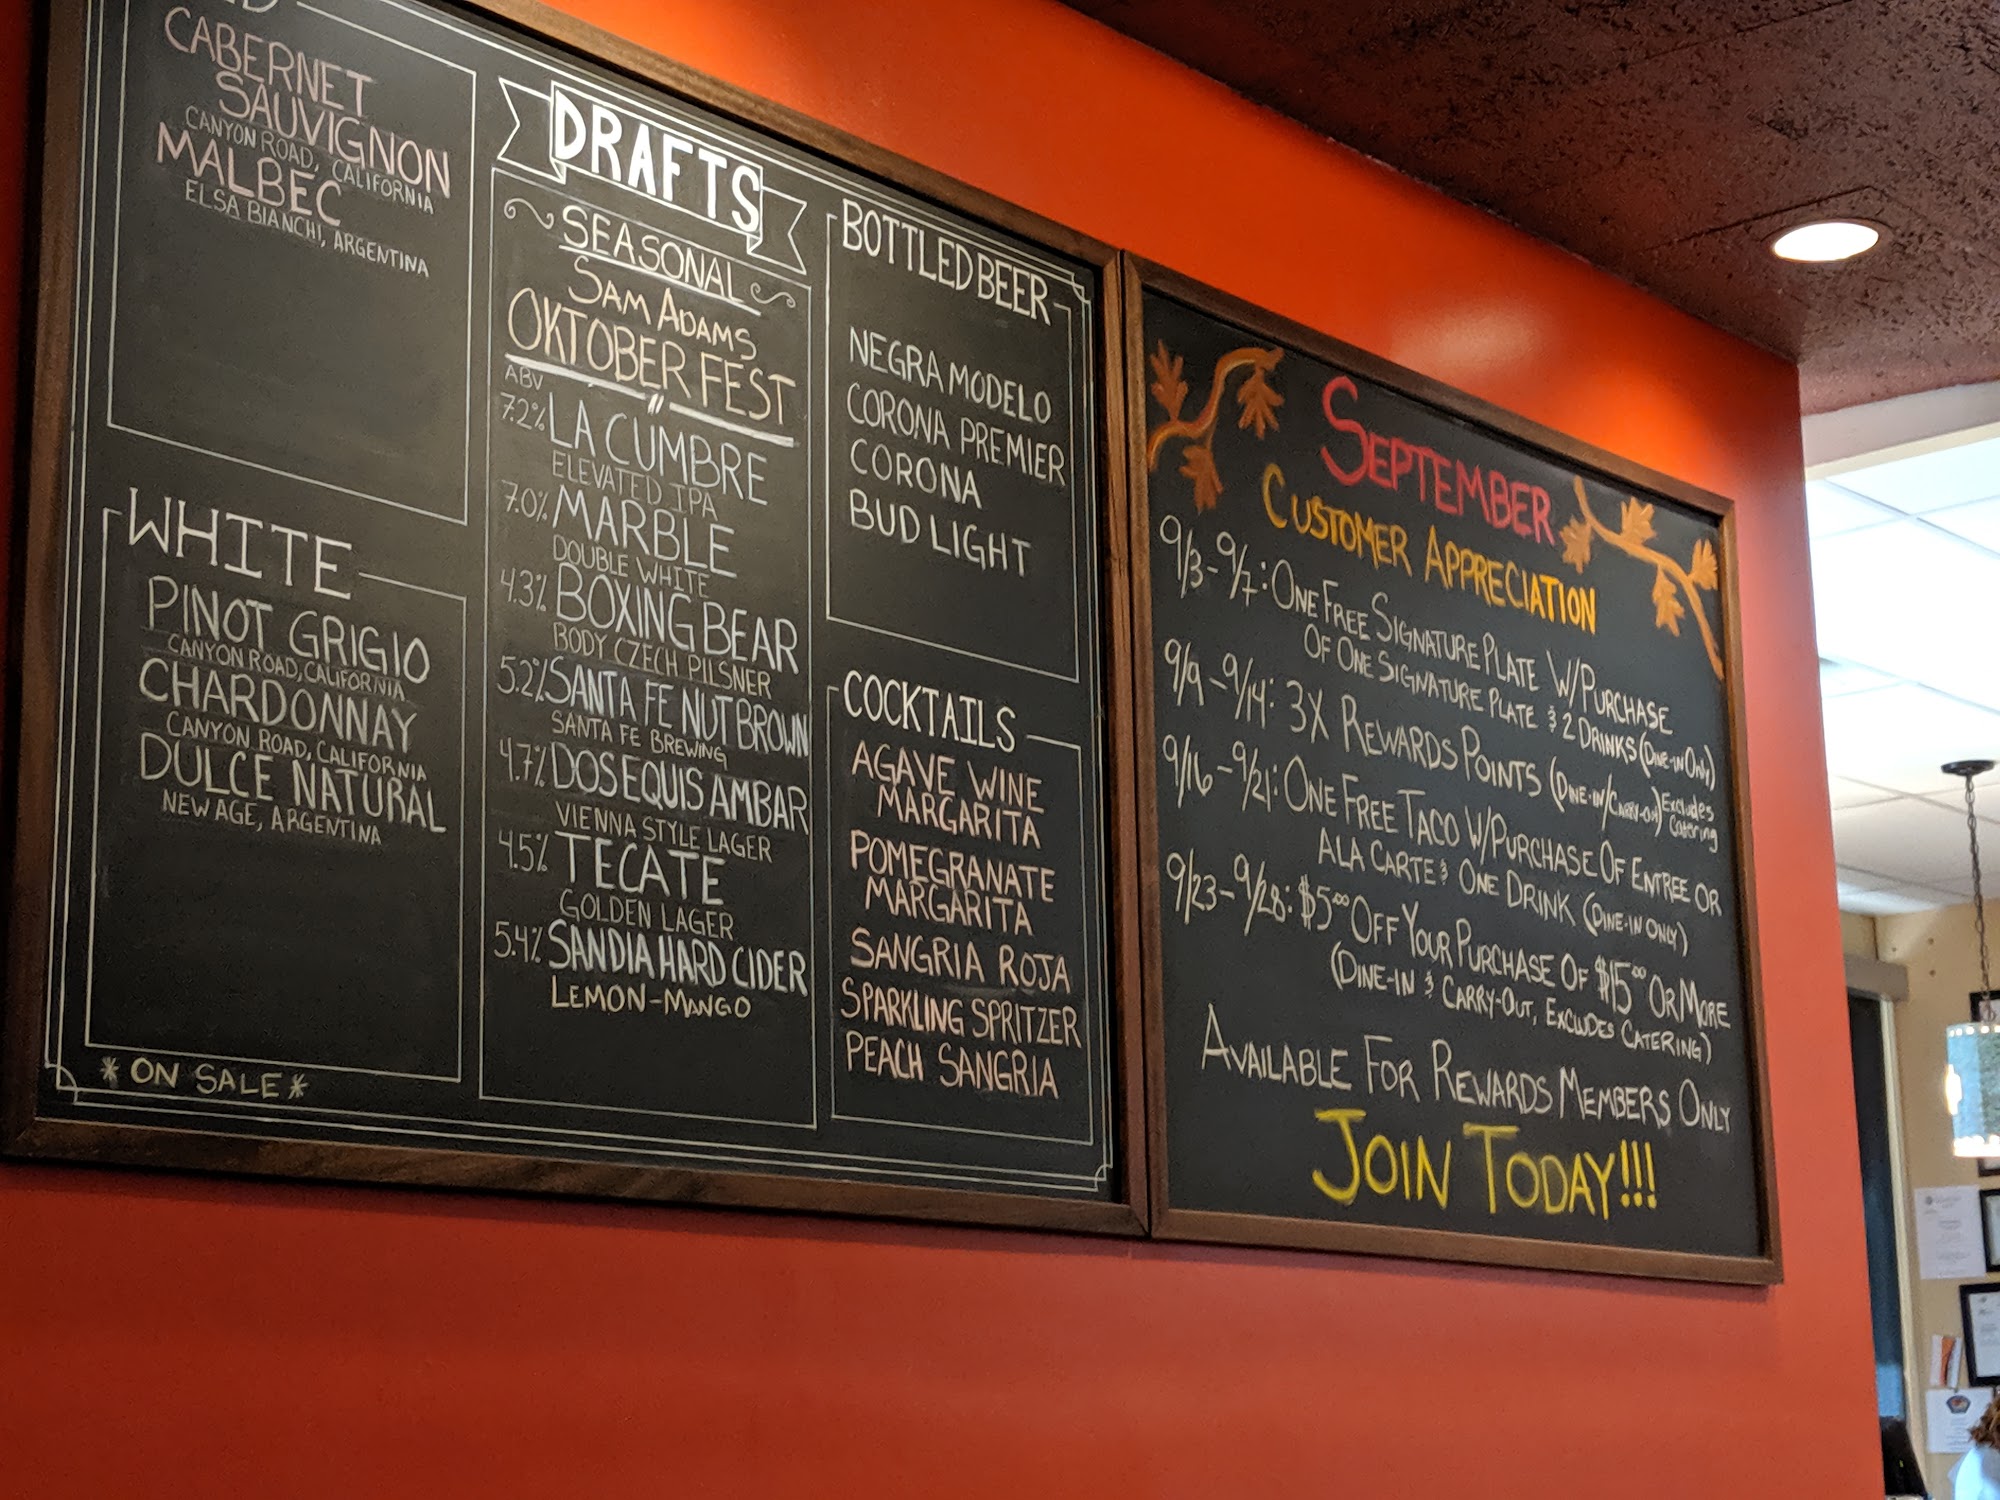 CABERNET
SAUVIGNON
CANYON ROAD, CALIFORNIA
MALBEC
ELSA BIANCHI, ARGENTINA
WHITE
PINOT GRIGIO
CANYON ROAD, CALIFORNIA
CHARDONNAY
CANYON ROAD, CALIFORNIA
DULCE NATURAL
NEW AGE, ARGENTINA
*ON SALE*
DRAFTS
SEASONAL
SAM ADAMS
OKTOBER FEST
ABV
7.2% LA CUMBRE
ELEVATED IPA
7.0% MARBLE
DOUBLE WHITE
4.3% BOXING BEAR
BODY CZECH PILSNER
5.2% SANTA FE NUT BROWN
SANTA FE BREWING
4.7% DOS EQUIS AMBAR
VIENNA STYLE LAGER
4.5% TECATE
GOLDEN LAGER
5.4% SANDIA HARD CIDER
LEMON-MANGO
BOTTLED BEER
NEGRA MODELO
CORONA PREMIER
CORONA
BUD LIGHT
COCKTAILS
AGAVE WINE
MARGARITA
POMEGRANATE
MARGARITA
SANGRIA ROJA
SPARKLING SPRITZER
PEACH SANGRIA
SEPTEMBER
CUSTOMER APPRECIATION
9/3-9/7: ONE FREE SIGNATURE PLATE W/PURCHASE
OF ONE SIGNATURE PLATE & 2 DRINKS (DINE-IN ONLY)
9/9-9/14: 3X REWARDS POINTS (DINE-IN/CARRY-OUT) Excludes Catering
9/16-9/21: ONE FREE TACO W/PURCHASE OF ENTREE OR
ALA CARTE & ONE DRINK (DINE-IN ONLY)
9/23-9/28: $5.00 OFF YOUR PURCHASE OF $15.00 OR MORE
(DINE-IN & CARRY-OUT, EXCLUDES CATERING)
AVAILABLE FOR REWARDS MEMBERS ONLY
JOIN TODAY!!!